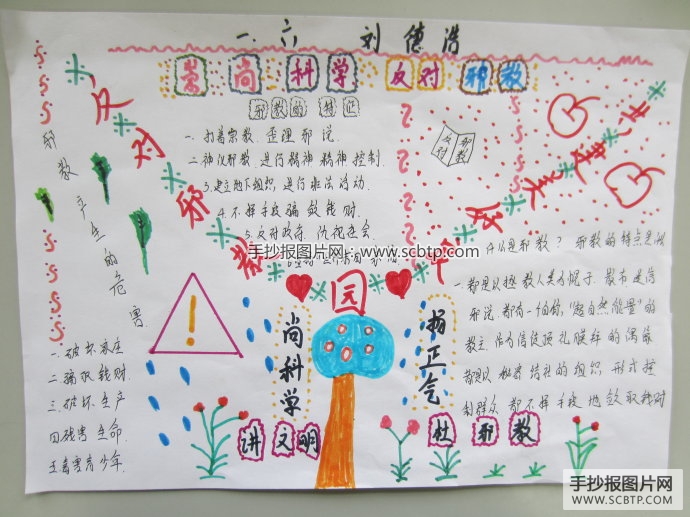 一.六 刘德浩
崇尚科学 反对邪教
邪教的特征
一.打着宗教.歪理邪说.
二.神汉邪教 进行精神精神控制.
3.建立地下组织,进行非法活动.
4.不择手段骗敛钱财.
5.反对政府.仇视社会
手抄报图片网 - www.scbtp.com
反对邪教
园
反对
邪教
邪教产生的危害
一.破坏家庭
二.骗取钱财.
三.破坏生产
四.残害生命.
五.毒害青少年.
尚科学
讲文明
扬正气
杜邪教
什么是邪教? 邪教的特点是
一.都是以拯救人类为幌子.散布迷信
邪说.都有一个自称"超自然能量"的
教主作为信徒顶礼膜拜的偶像
都以秘密结社的组织形式控
制群众 都不择手段地敛取钱财
手抄报图片网
WWW.SCBTP.COM